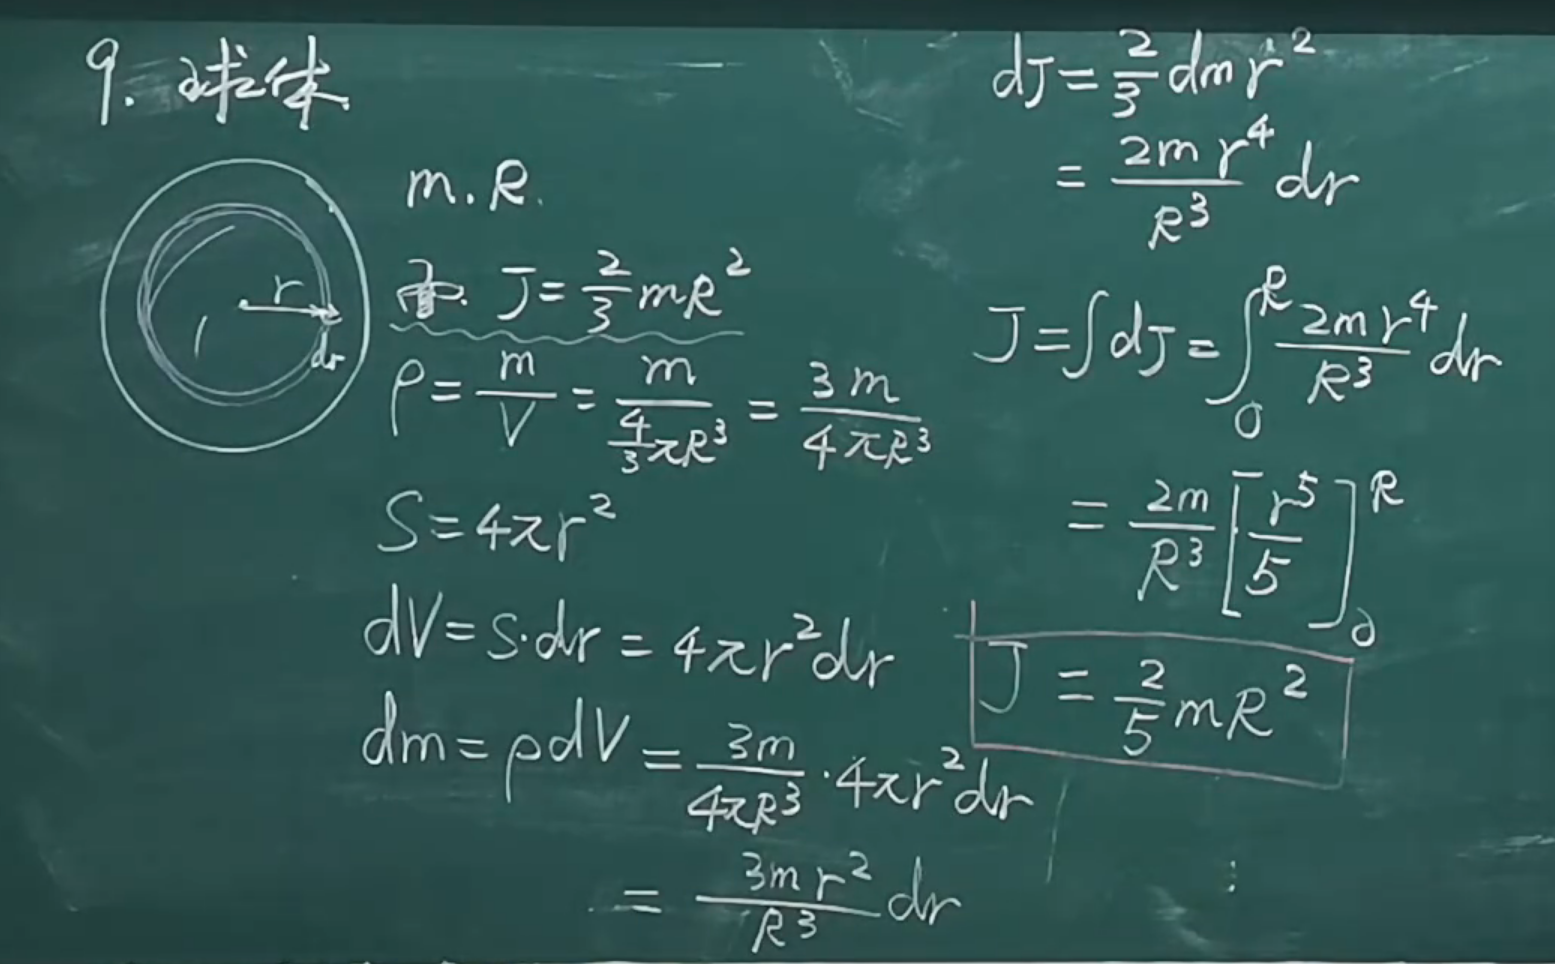 9. 球体
r
dr
m. R.
J = 2/3 mR²
ρ = m/V = m/(4/3 πR³) = 3m/(4πR³)
S = 4πr²
dV = S·dr = 4πr²dr
dm = ρdV = 3m/(4πR³) · 4πr²dr
= 3mr²/R³ dr
dJ = 2/3 dm r²
= 2mr⁴/R³ dr
J = ∫dJ = ∫₀ᴿ 2mr⁴/R³ dr
= 2m/R³ [r⁵/5]₀ᴿ
J = 2/5 mR²